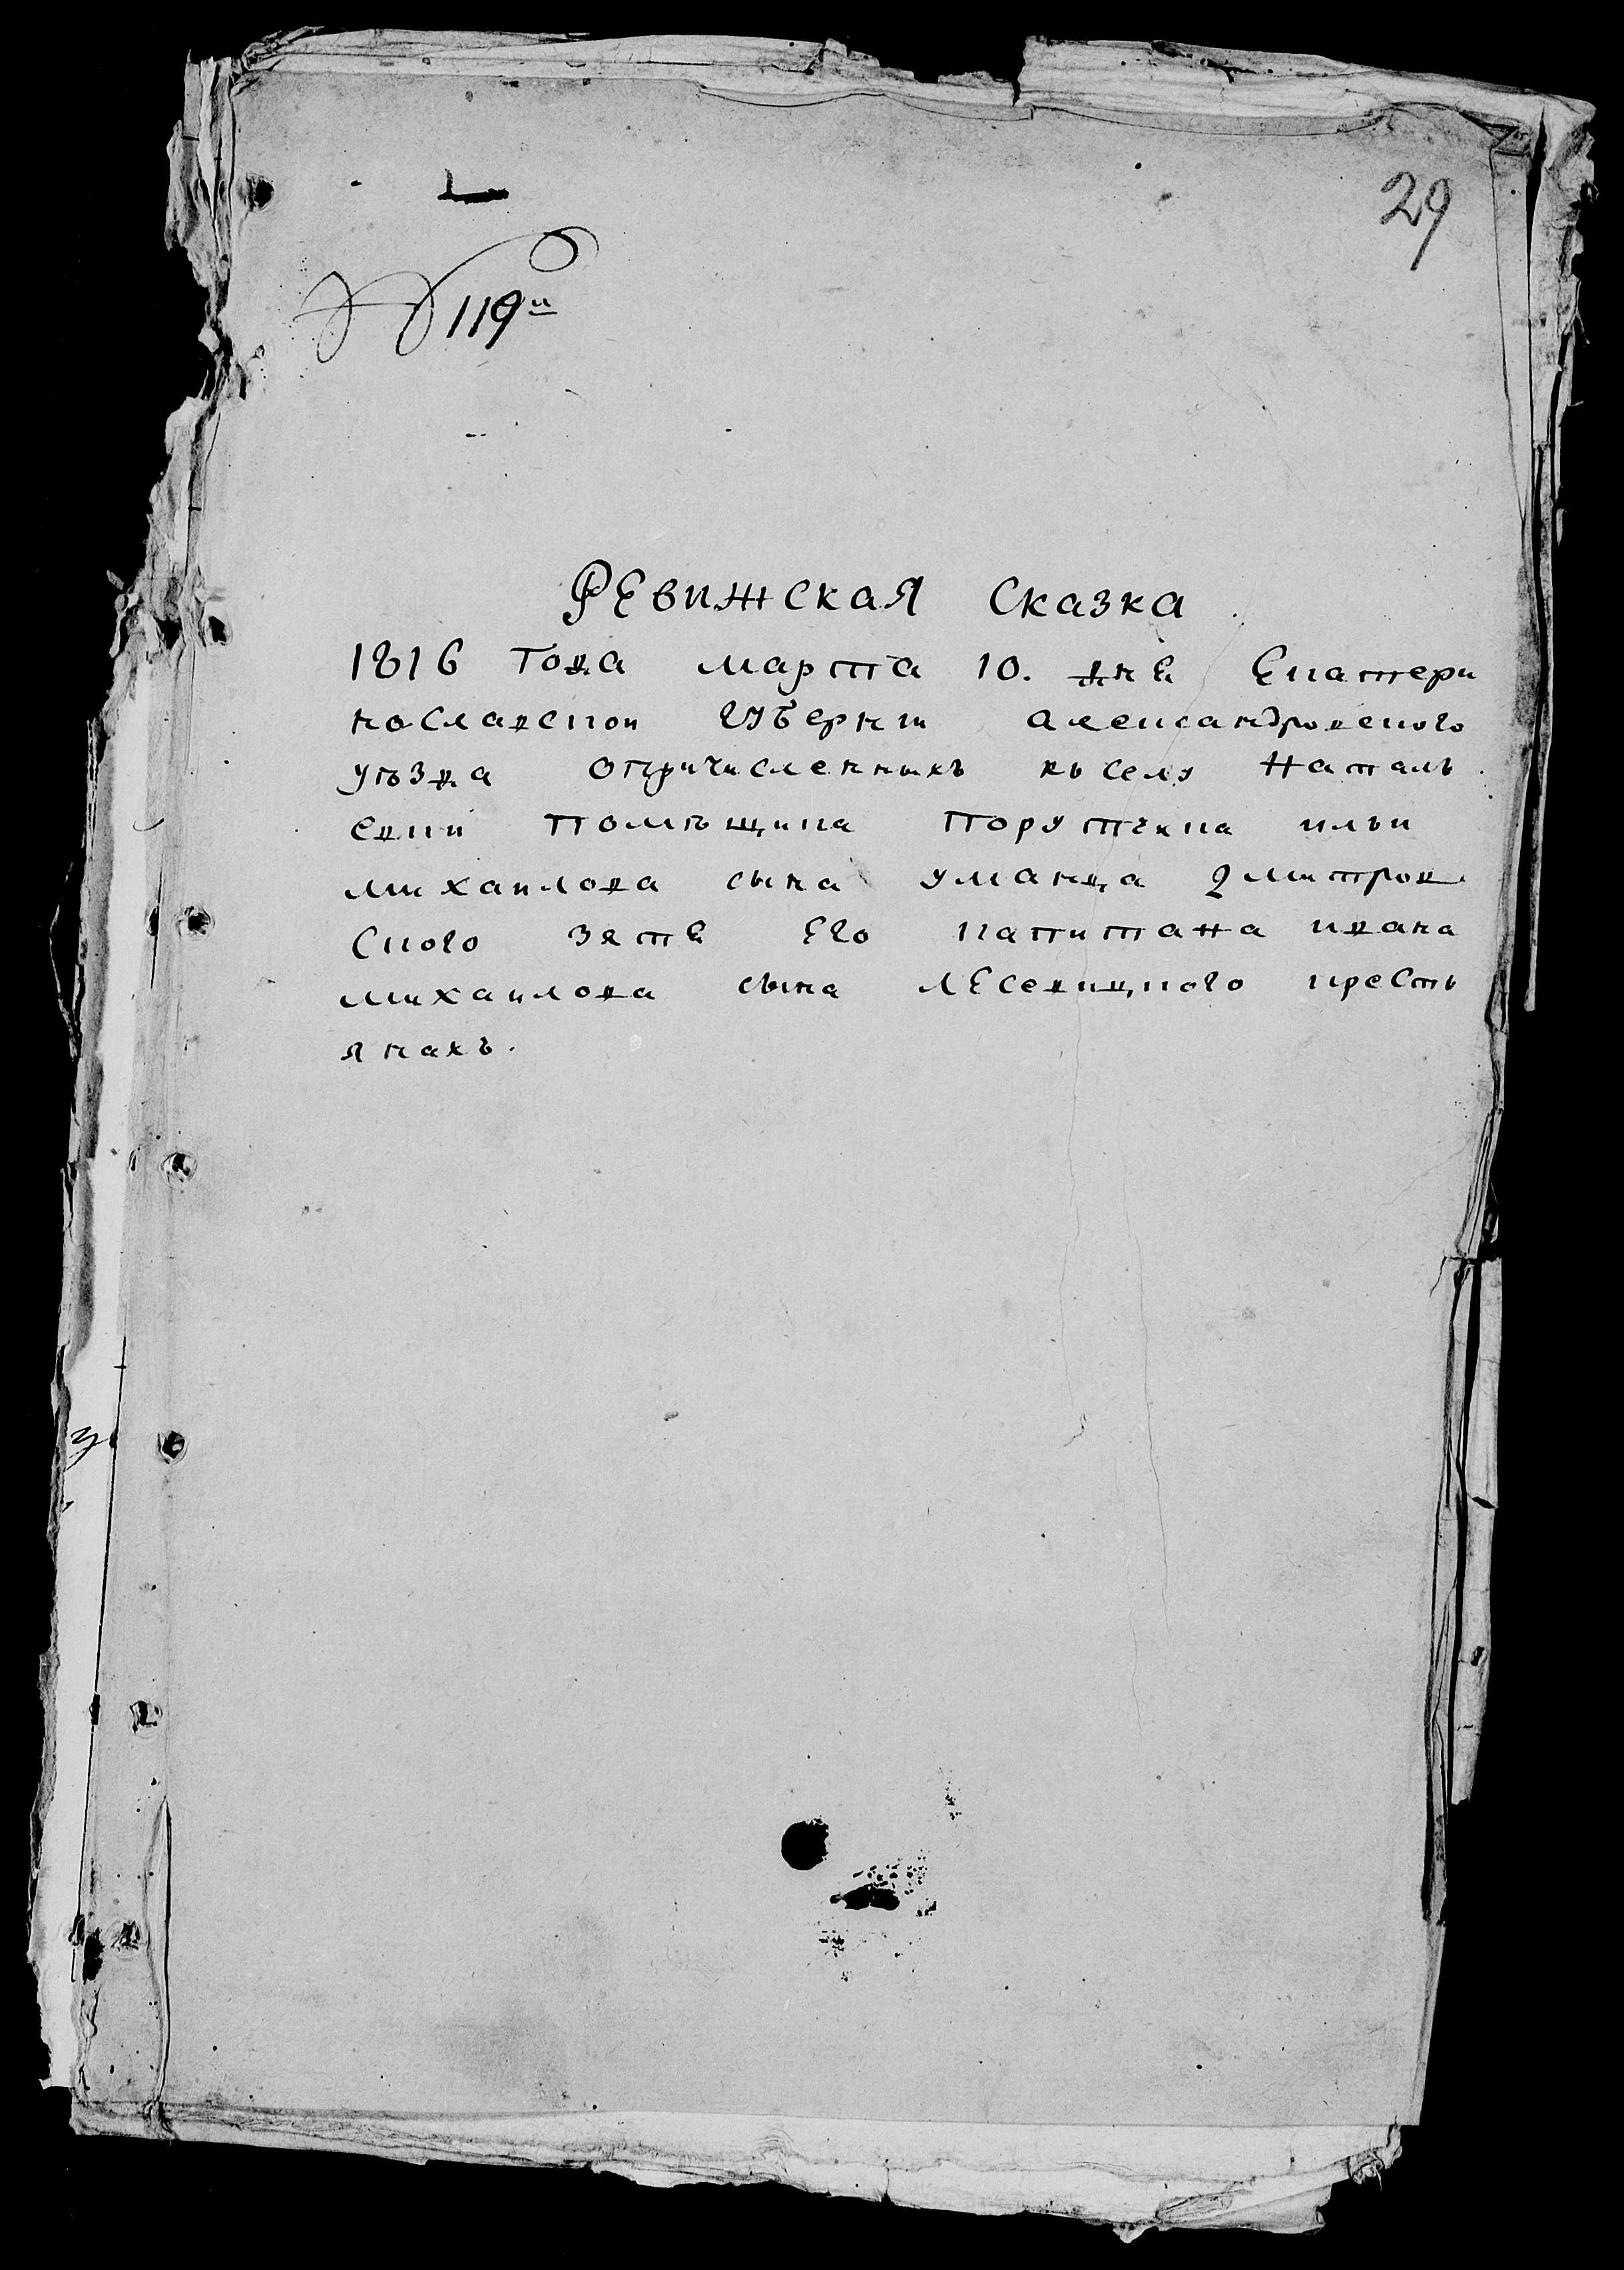 29
№ 119й
Ревижская Сказка
1816 Года марта 10. дня Екатери
нославской губернии александровского
уѣзда опричисленныхъ къ селу Наталь
евки помѣщика порутчика ильи
михаилова сына уманца дмитров
ского зятя Его капитана ивана
михаилова сына лЕсевицкого кресть
янахъ.